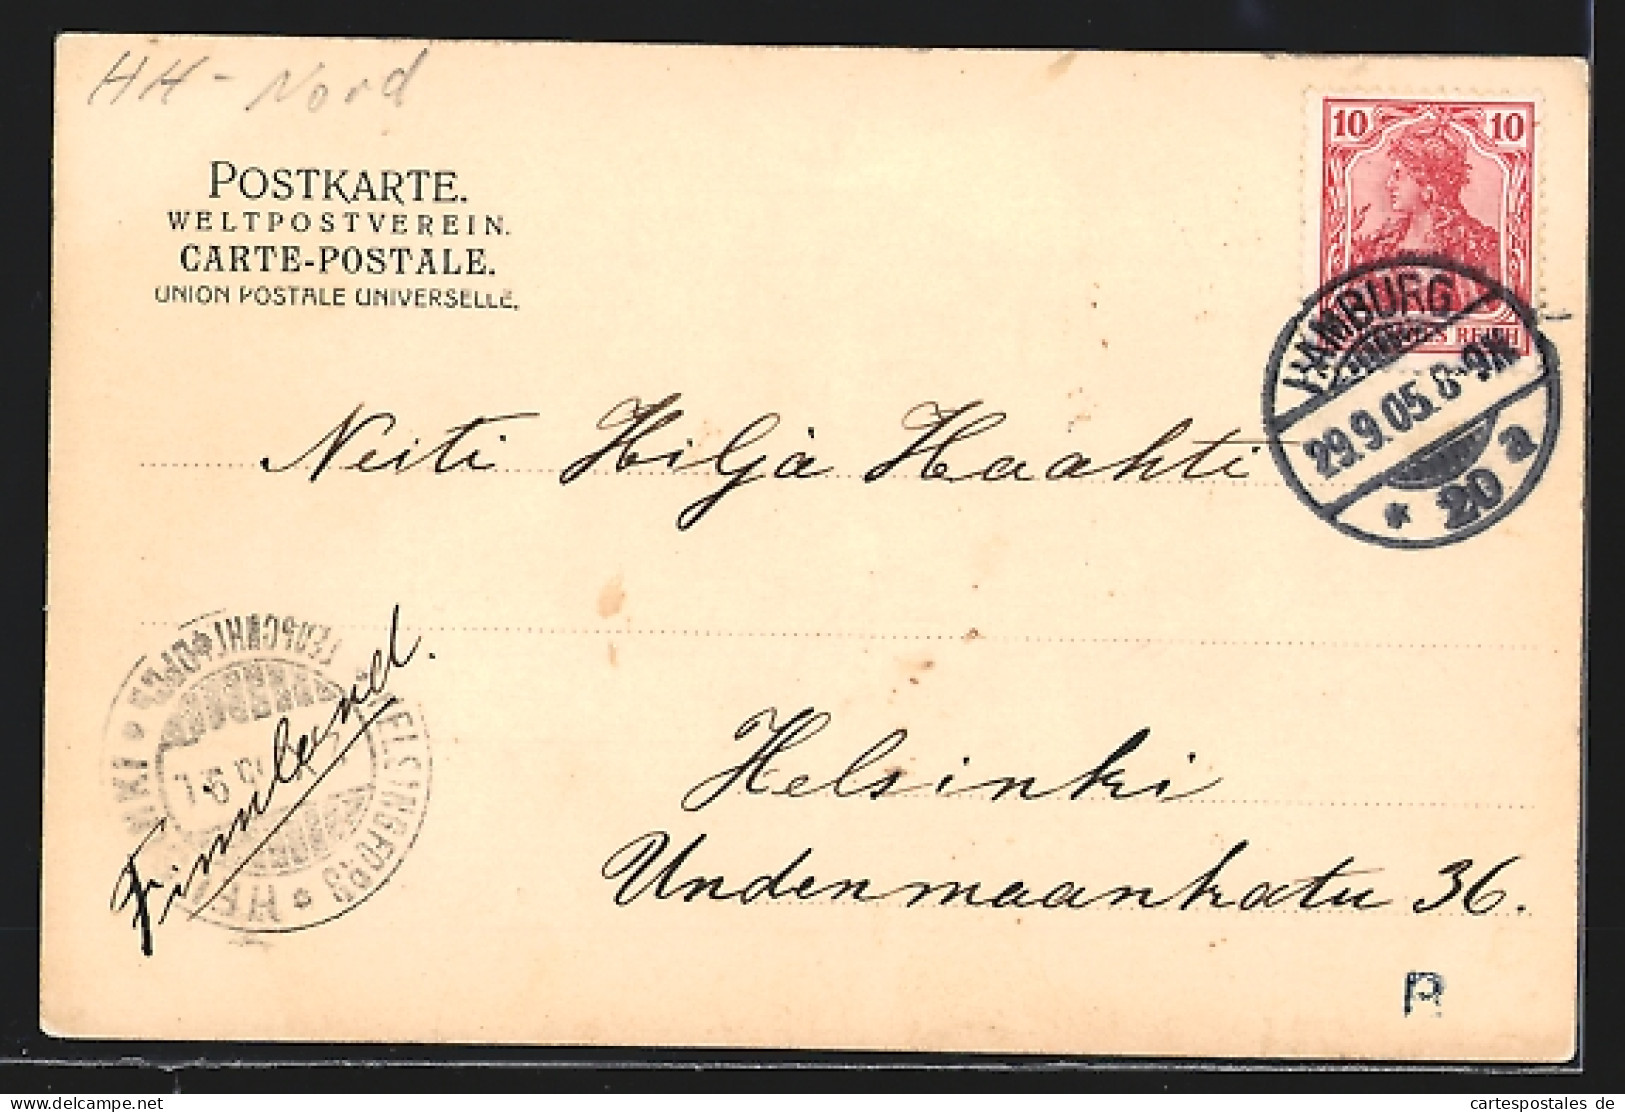 HH - Nord
POSTKARTE.
WELTPOSTVEREIN.
CARTE-POSTALE.
UNION POSTALE UNIVERSELLE.
10 10
REICH
HAMBURG
29.9.05. 8-9N
* 20 a
Neiti Hilja Haahti
ГЕЛЬСИНГФОРСЪ
HELSINGFORS
Finnland.
Helsinki
Undenmaankatu 36.
R
www.cartespostales.de
cartespostales de